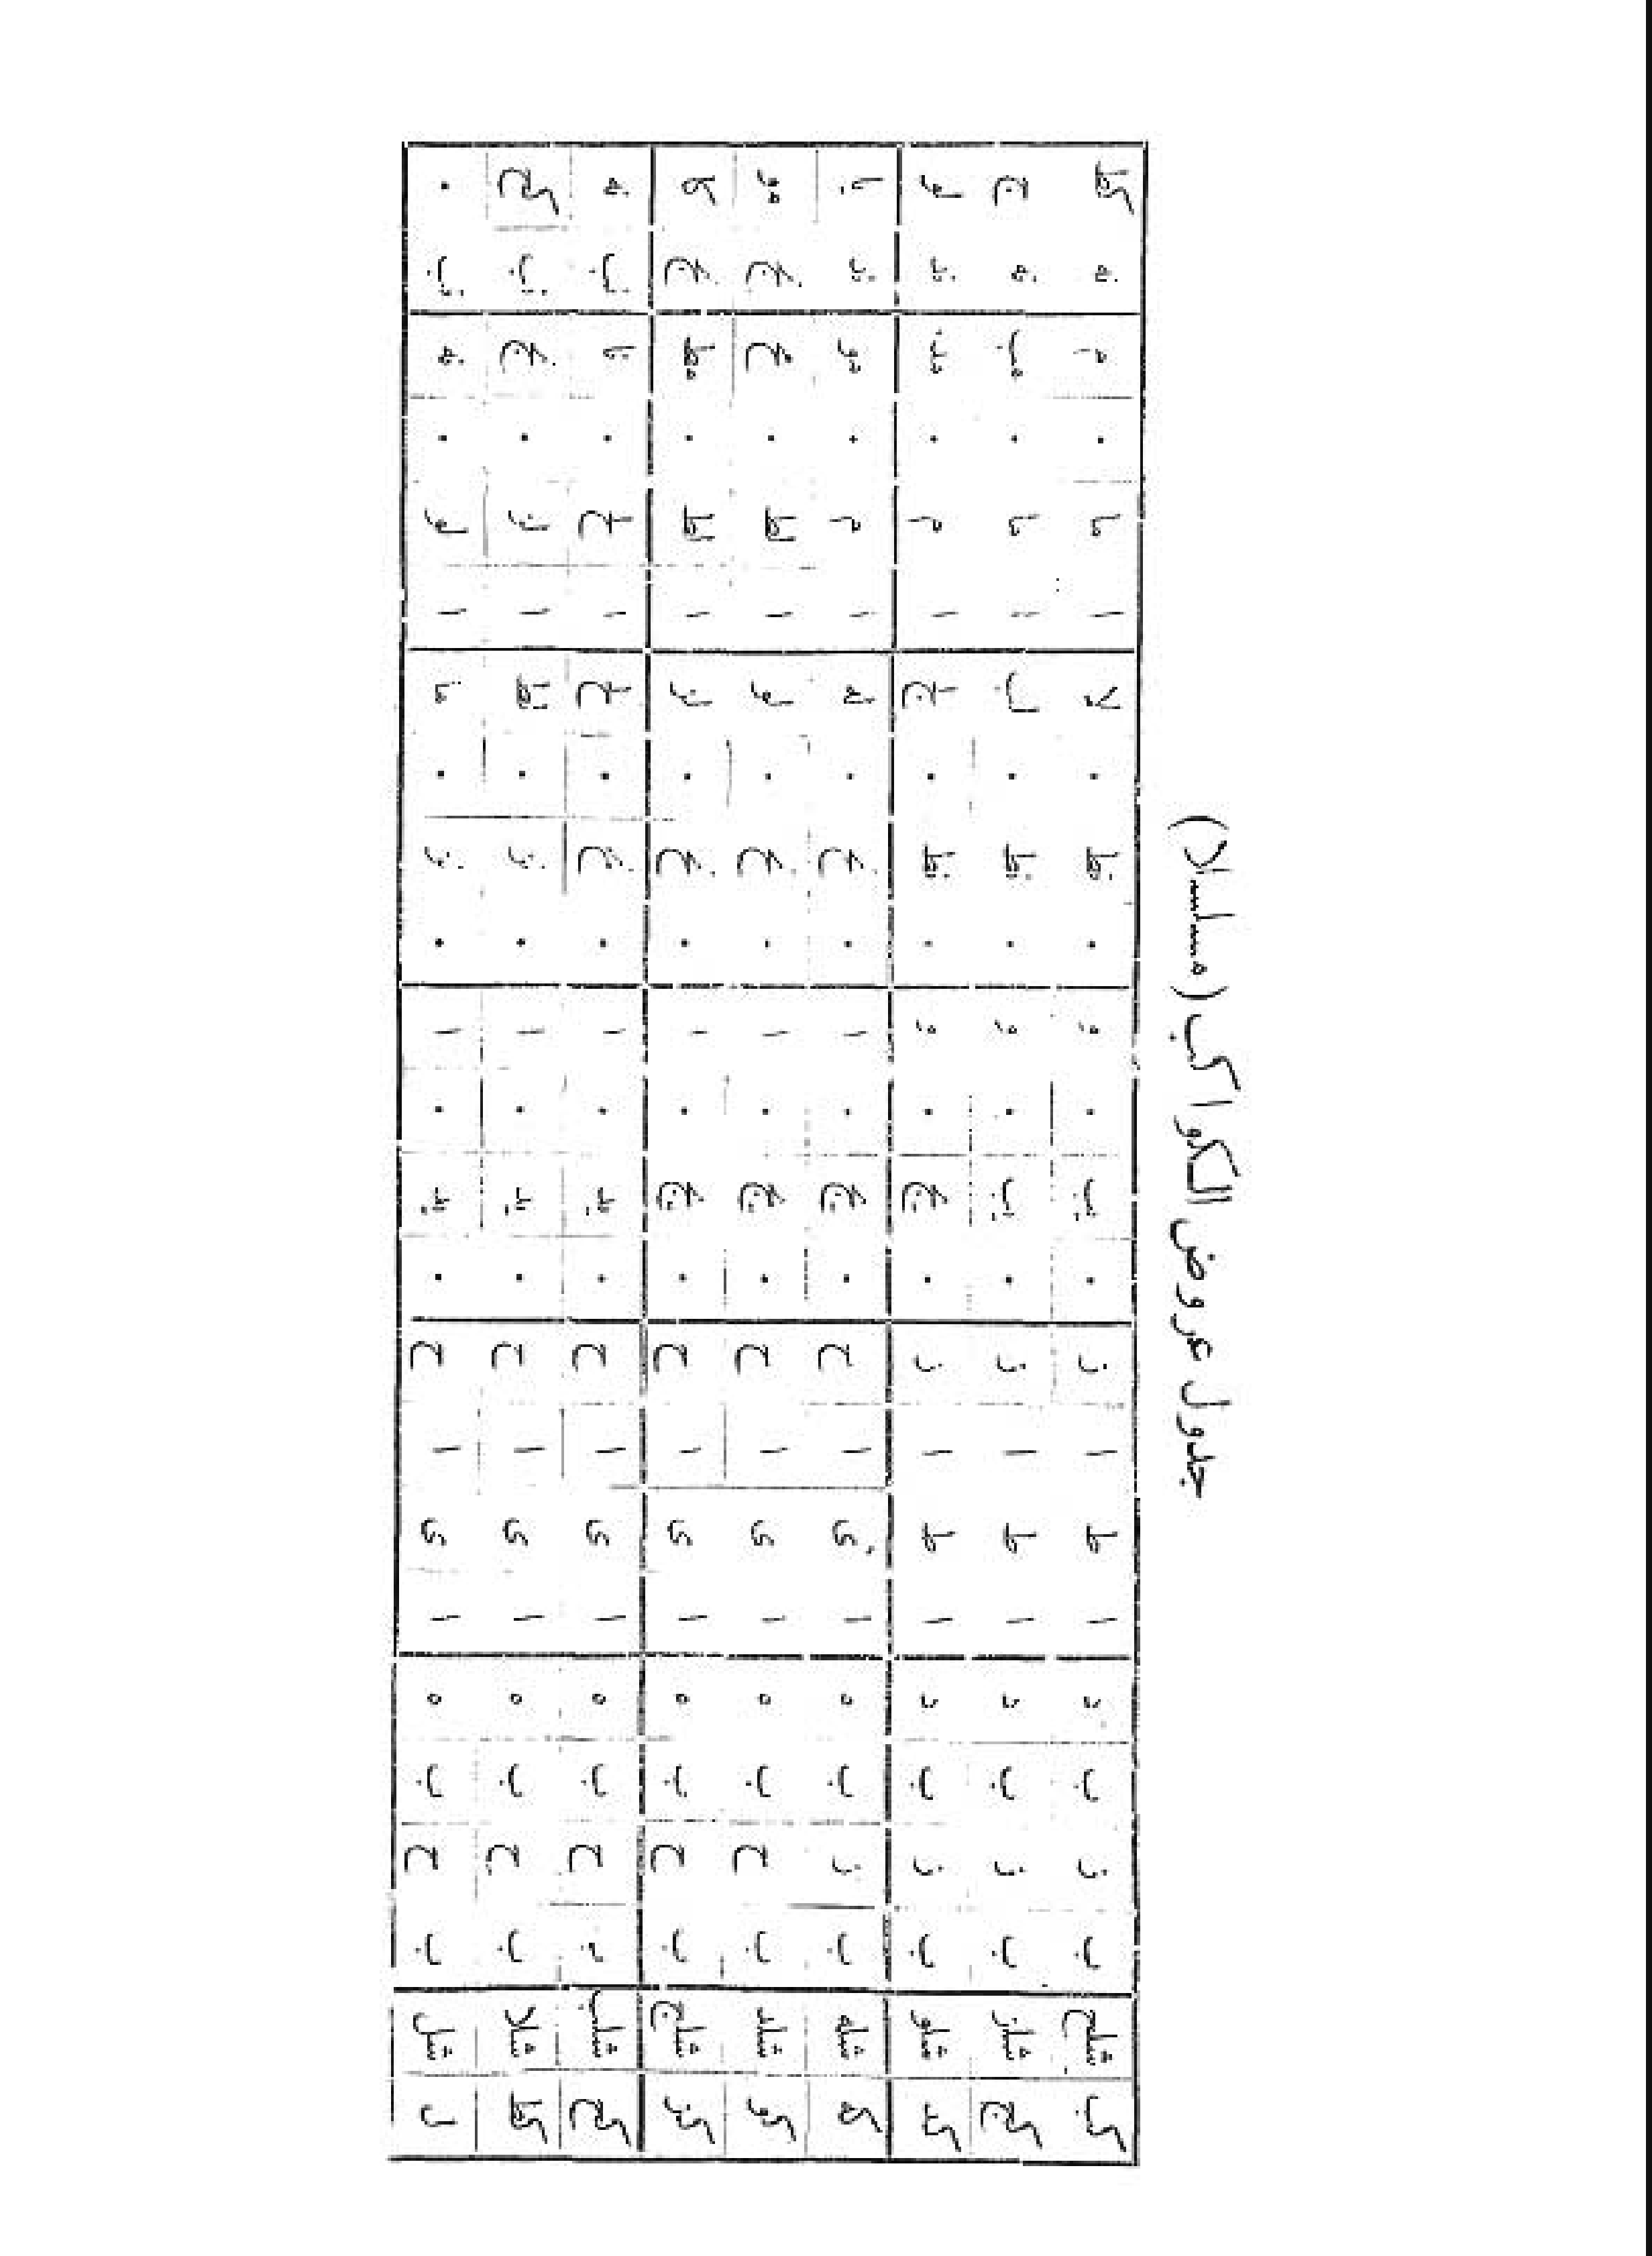 جدول عروض الكواكب (مسلسلا)
كب شلح ب ز ب د ا ط ا ز ٠ يب ٠ ه ٠ نط ٠ لا ا ما ٠ ما نه كط
كج شلز ب ز ب د ا ط ا ز ٠ يب ٠ ه ٠ نط ٠ لب ا ما ٠ مب نه ج
كد شلو ب ز ب د ا ط ا ز ٠ يج ٠ ه ٠ نط ٠ لج ا م ٠ مد ند لو
كه شله ب ز ب ه ا ي ا ح ٠ يج ٠ ا ٠ نح ٠ له ا م ٠ مو ند يا
كو شلد ب ح ب ه ا ي ا ح ٠ يج ٠ ا ٠ نح ٠ لو ا لط ٠ مح نج مو
كز شلج ب ح ب ه ا ي ا ح ٠ يج ٠ ا ٠ نح ٠ لز ا لط ٠ مط نج ك
كح شلب ب ح ب ه ا ي ا ح ٠ يد ٠ ا ٠ نح ٠ لح ا لح ٠ نا نب نه
كط شلا ب ح ب ه ا ي ا ح ٠ يد ٠ ا ٠ نز ٠ لط ا لز ٠ نج نب كح
ل شل ب ح ب ه ا ي ا ح ٠ يد ٠ ا ٠ نز ٠ ما ا لو ٠ نه نب ٠